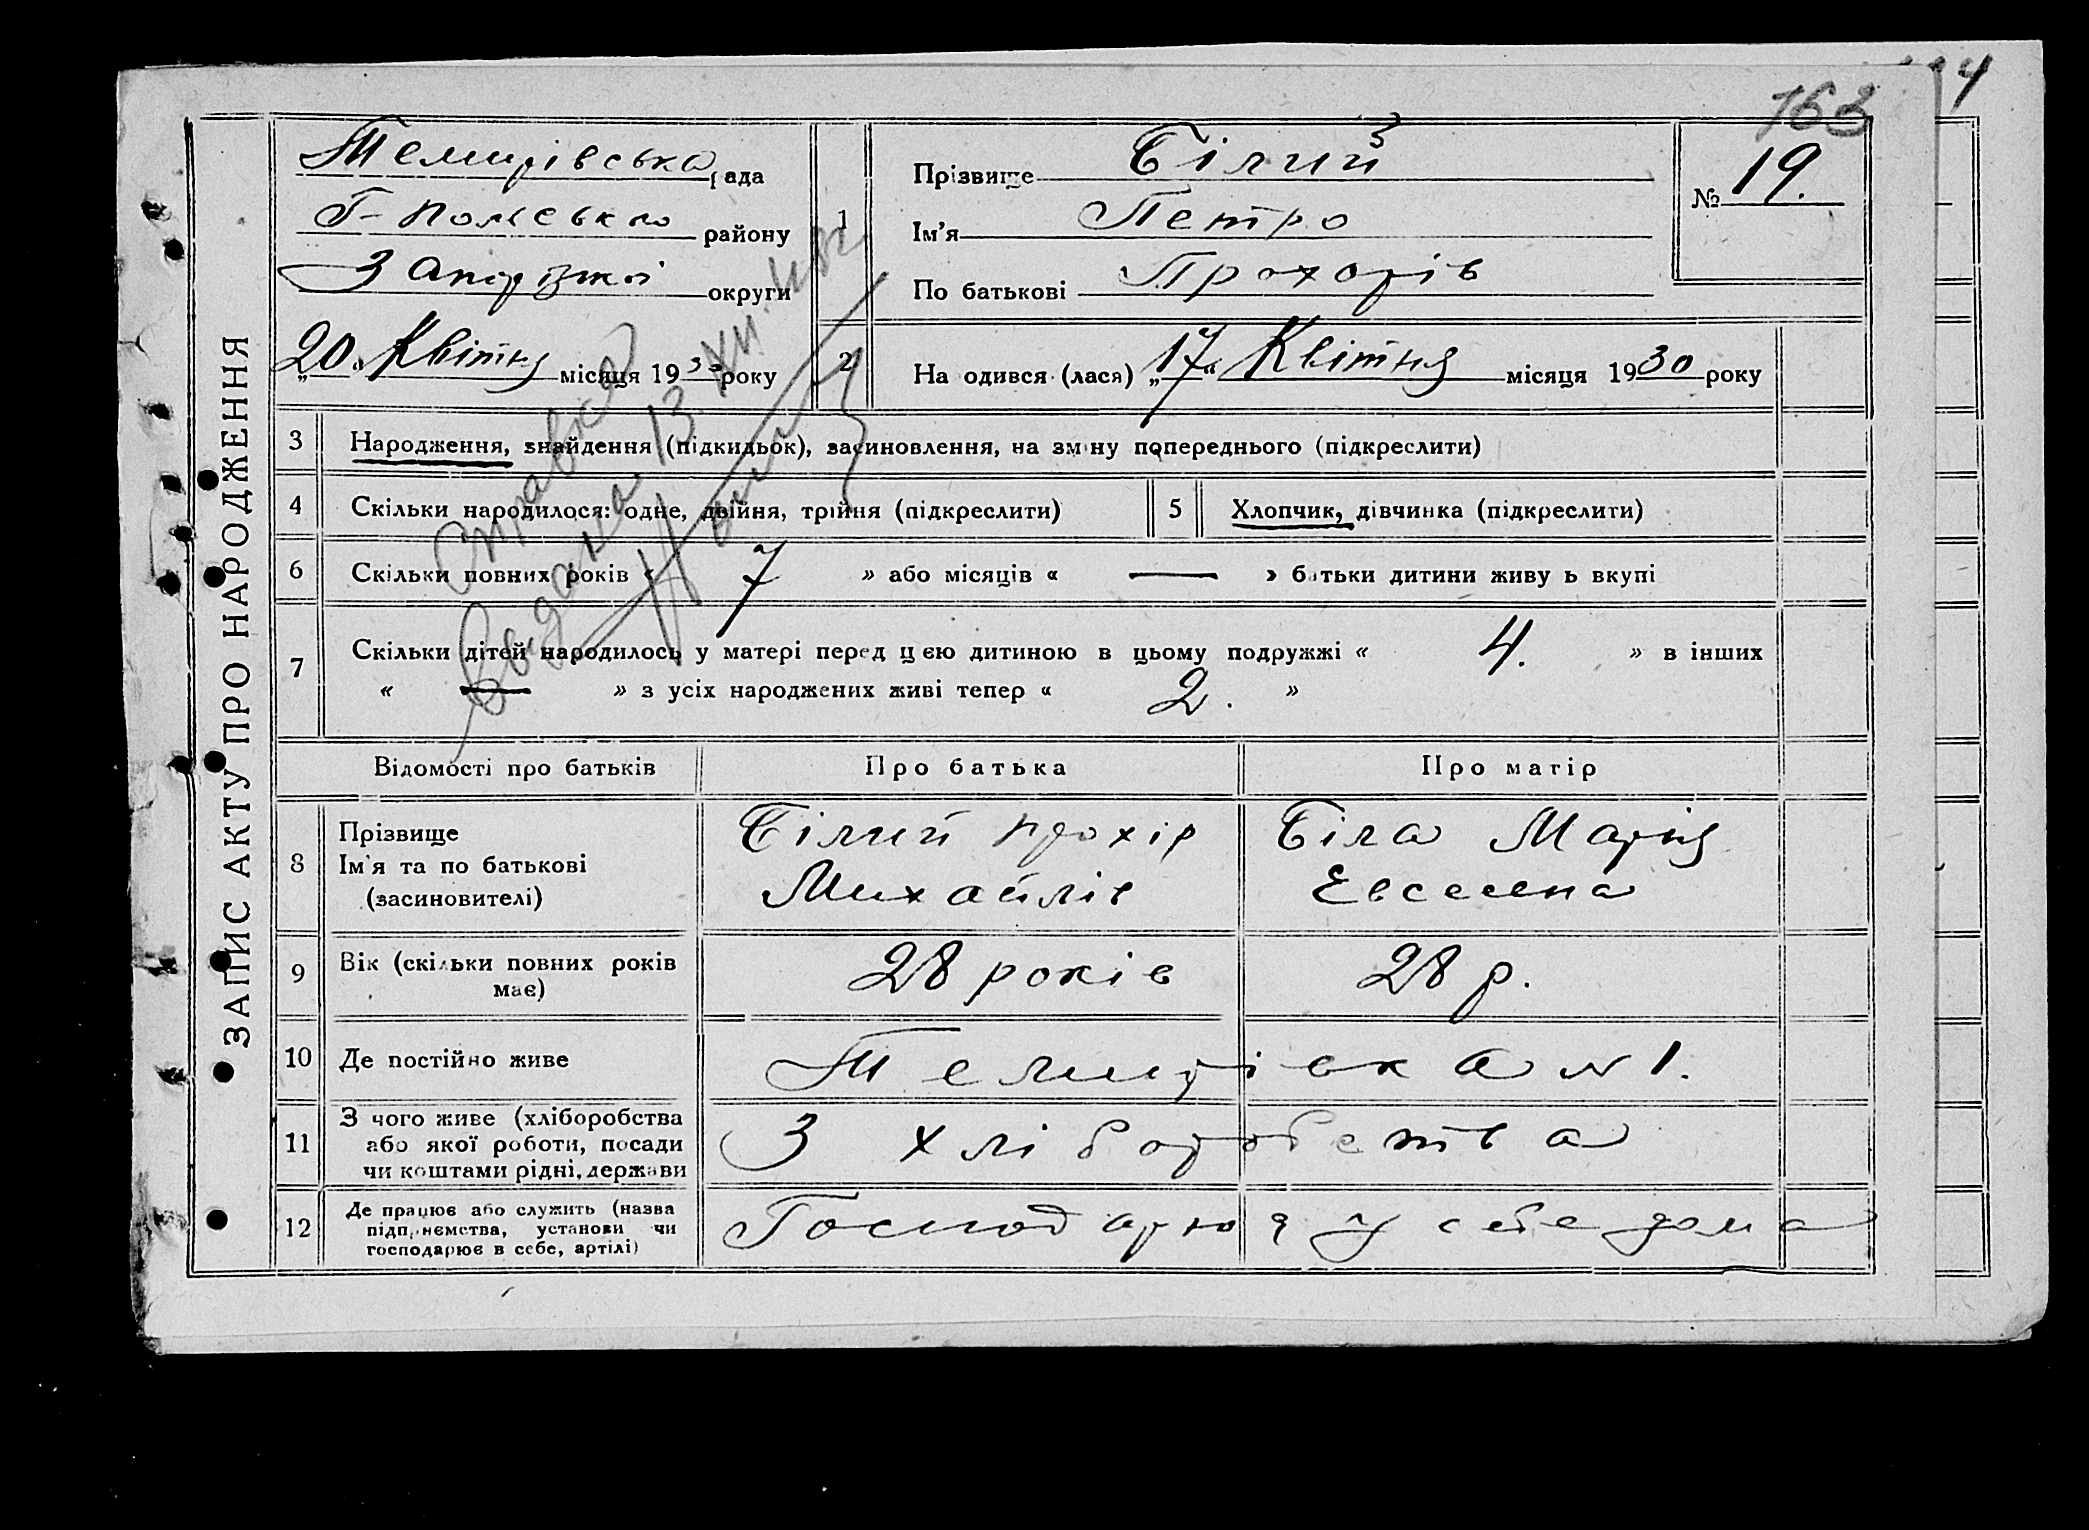 4
163
ЗАПИС АКТУ ПРО НАРОДЖЕННЯ
Темирівська рада
Г-Польсько району
Запорізької округи
„20“ Квітня місяця 1930 року
1
Прізвище Білий
Ім'я Петро
По батькові Прохорів
№ 19.
2
На одився (лася) „17“ Квітня місяця 1930 року
3 Народження, знайдення (підкидьок), засиновлення, на зміну попереднього (підкреслити)
4 Скільки народилося: одне, двійня, трійня (підкреслити)
5 Хлопчик, дівчинка (підкреслити)
6 Скільки повних років « 7 » або місяців « — » батьки дитини живу ь вкупі
7 Скільки дітей народилось у матері перед цією дитиною в цьому подружжі « 4. » в інших
« — » з усіх народжених живі тепер « 2. »
Справка
Выдана 13.XII.
Відомості про батьків Про батька Про матір
8 Прізвище
Ім'я та по батькові
(засиновителі)
Білий Прохір
Михайлів
Біла Марія
Евсеевна
9 Вік (скільки повних років
має)
28 років
28 р.
10 Де постійно живе
Темирівка №1.
11 З чого живе (хліборобства
або якої роботи, посади
чи коштами рідні, держави
З хліборобства
12 Де працює або служить (назва
підприємства, установи чи
господарює в себе, артілі)
Господарює у себе дома